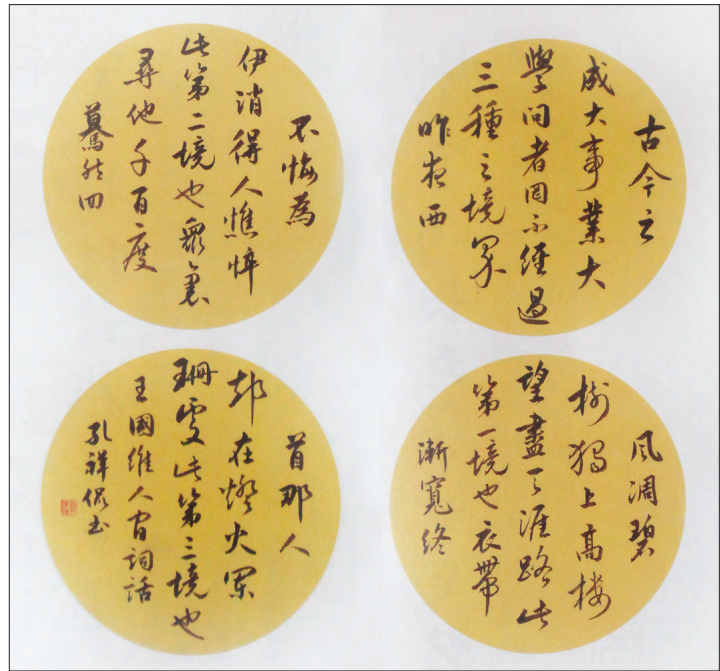 古今之
成大事業大
學問者罔不經過
三種之境界
昨夜西
風凋碧
樹獨上高樓
望盡天涯路此
第一境也衣帶
漸寬終
不悔為
伊消得人憔悴
此第二境也眾裏
尋他千百度
驀然回
首那人
却在燈火闌
珊處此第三境也
王國維人间詞話
孔祥侃书